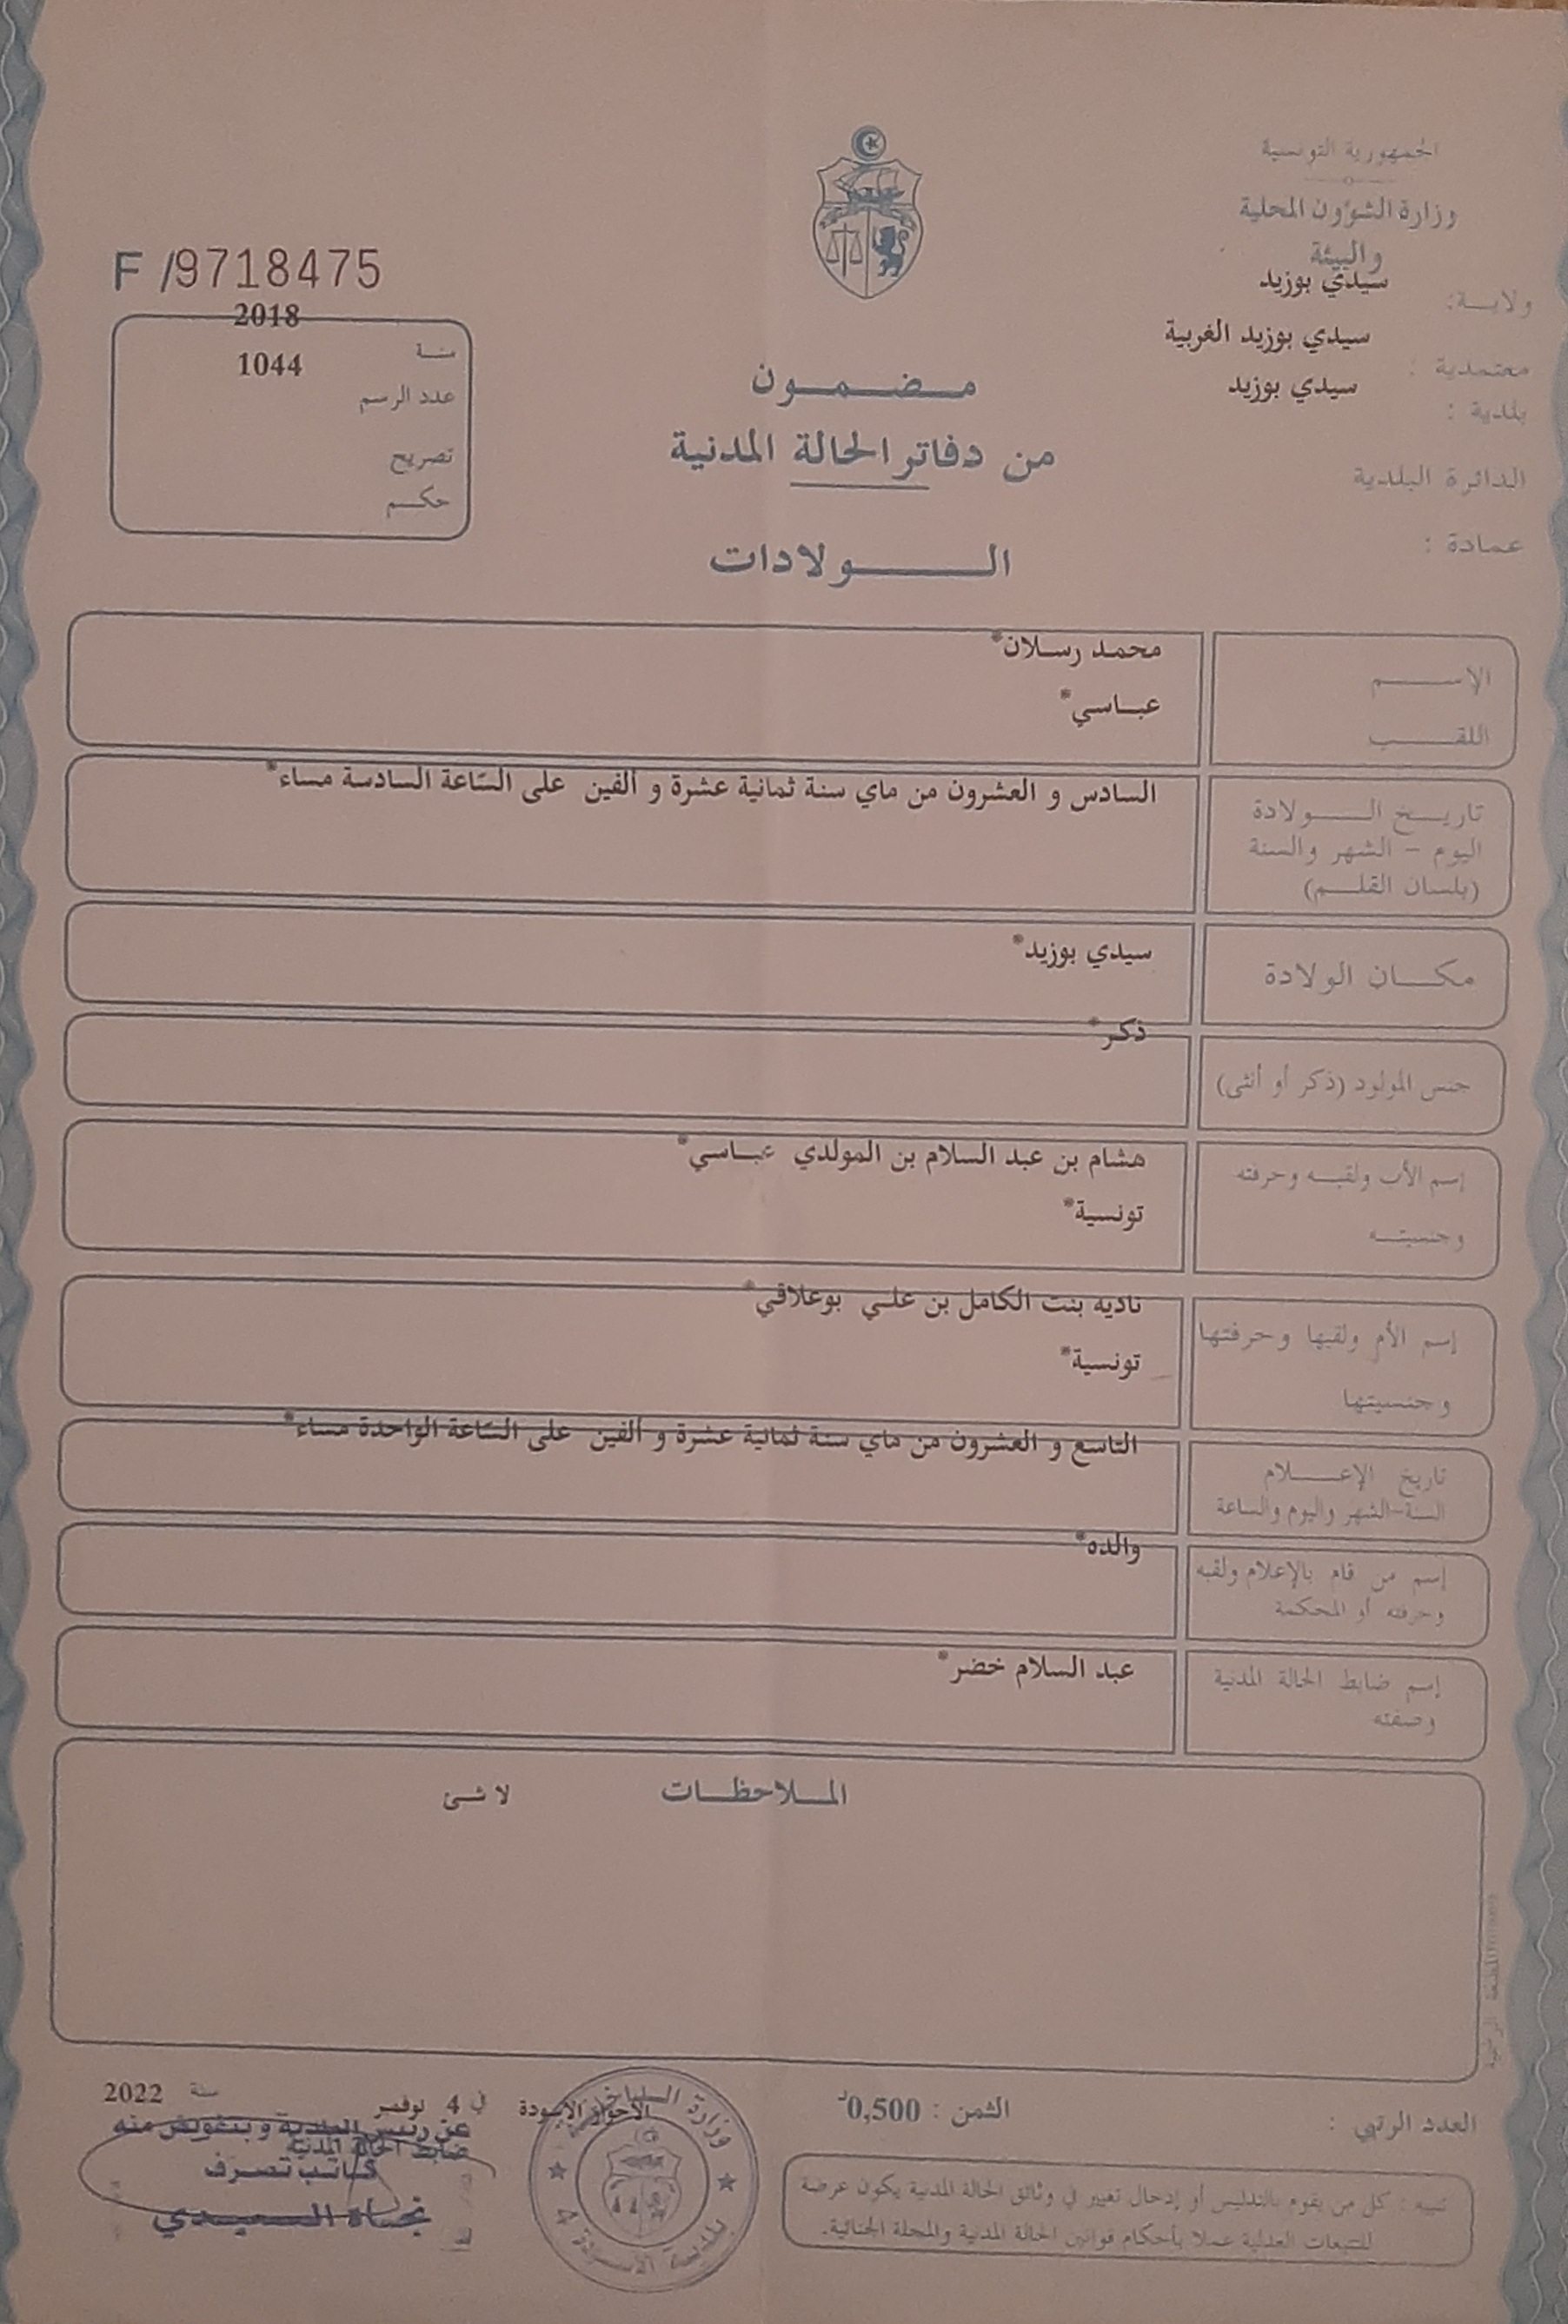 الجمهورية التونسية
وزارة الشؤون المحلية
والبيئة
ولايـــة: سيدي بوزيد
معتمدية : سيدي بوزيد الغربية
بلدية : سيدي بوزيد
الدائرة البلدية
عمادة :
F /9718475
سنـة 2018
عدد الرسم 1044
تصريح
حكـم
مـضـمـون
من دفاتر الحالة المدنية
الـــولادات
الإســـم محمد رسلان*
اللقـــب عبـاسي*
تاريـــخ الـــولادة السادس و العشرون من ماي سنة ثمانية عشرة و الفين على السّاعة السادسة مساء*
اليوم – الشهر والسنة
(بلسان القلـم)
مكــان الولادة سيدي بوزيد*
جنس المولود (ذكر أو أنثى) ذكر*
إسم الأب ولقبـه وحرفته هشام بن عبد السلام بن المولدي عبـاسي*
وجنسيتـه تونسية*
إسم الأم ولقبها وحرفتها ناديه بنت الكامل بن علـي بوعلاقي*
وجنسيتها تونسية*
تاريخ الإعـــلام التاسع و العشرون من ماي سنة ثمانية عشرة و الفين على السّاعة الواحدة مساء*
السنة-الشهر واليوم والساعة
إسم من قام بالإعلام ولقبه والده*
وحرفته أو المحكمة
إسم ضابط الحالة المدنية عبد السلام خضر*
وصفته
الملاحظـات لا شـئ
العدد الرتبي :
الثمن : 0,500د
الأحواز الاسودة في 4 نوفمبر سنة 2022
عن رئيس البلدية و بتفويض منه
ضابط الحالة المدنية
كاتب تصرف
نجاة السعيدي
تنبيه : كل من يقوم بالتدليس أو إدخال تغيير في وثائق الحالة المدنية يكون عرضة
للتتبعات العدلية عملا بأحكام قوانين الحالة المدنية والمجلة الجنائية.
بلدية الأسودة 4